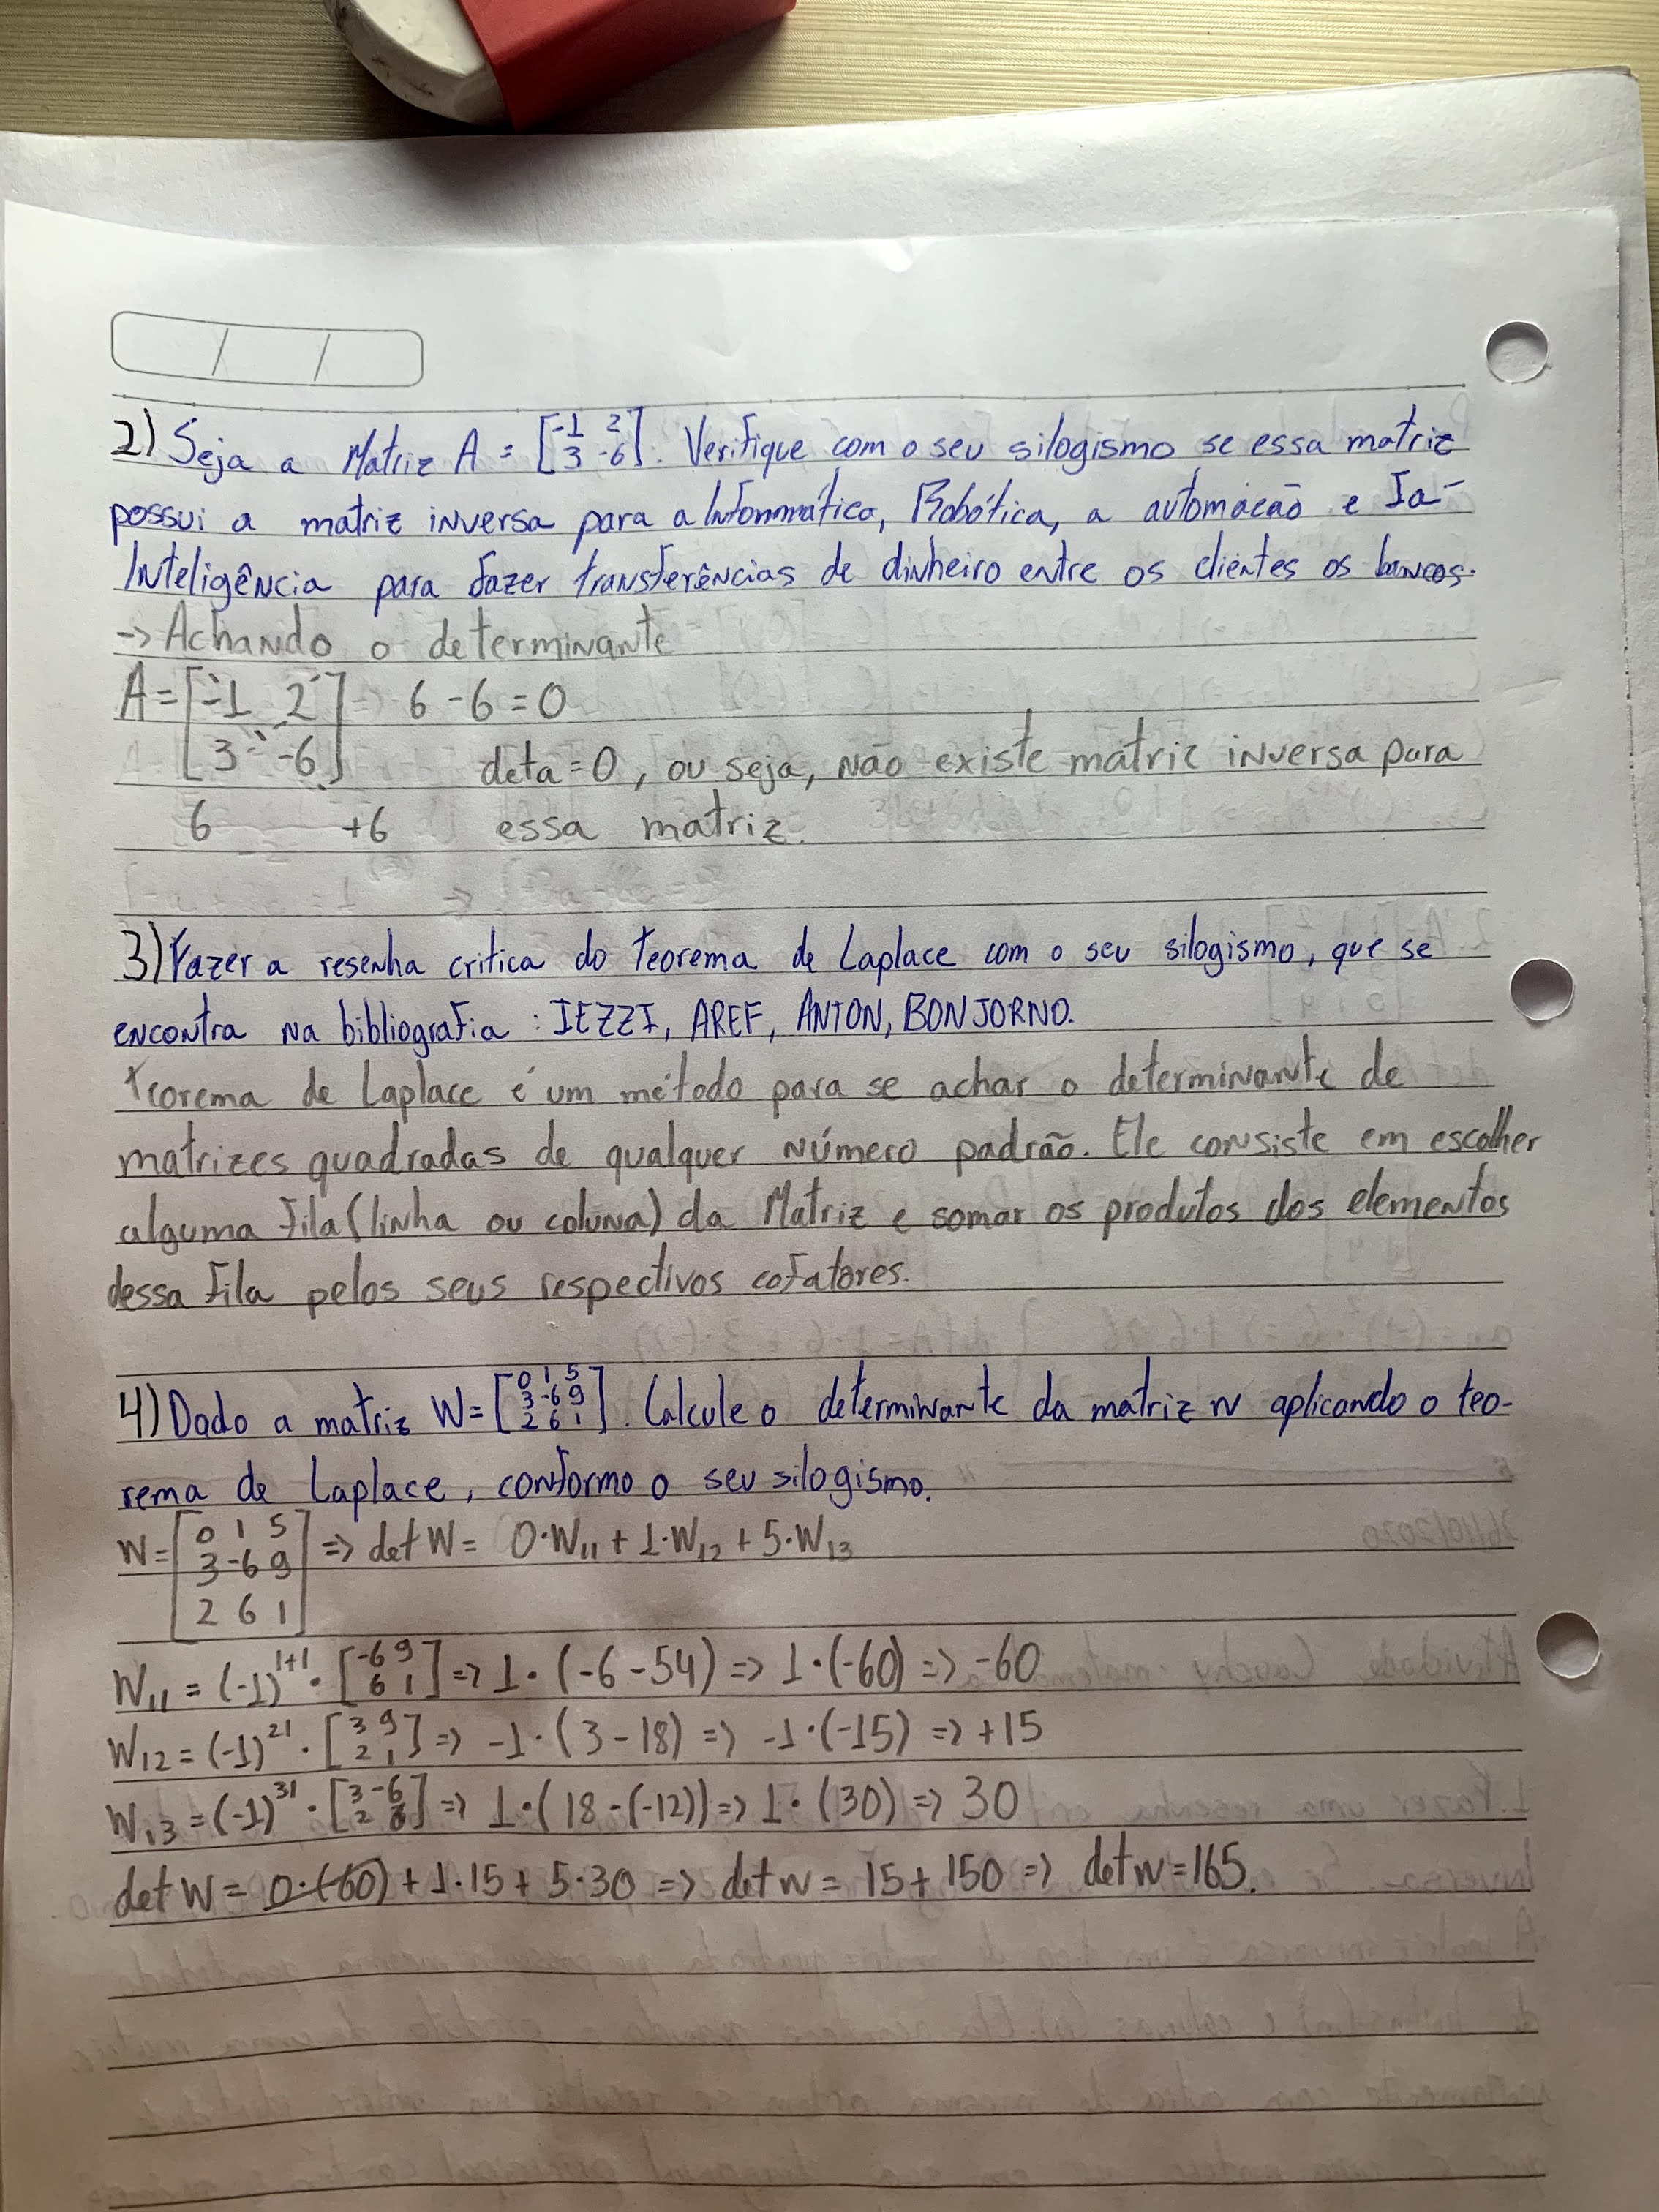 2) Seja a Matriz A = [-1 2
3 -6]. Verifique com o seu silogismo se essa matriz
possui a matriz inversa para a Informática, Robótica, a automacão e Ia-
Inteligência para fazer transferências de dinheiro entre os clientes os bancos.
-> Achando o determinante
A = [-1 2
3 -6] 6 - 6 = 0
deta = 0, ou seja, não existe matriz inversa para
6 +6 essa matriz.
3) Fazer a resenha critica do teorema de Laplace com o seu silogismo, que se
encontra na bibliografia: IEZZI, AREF, ANTON, BONJORNO.
Teorema de Laplace é um método para se achar o determinante de
matrizes quadradas de qualquer número padrão. Ele consiste em escolher
alguma fila (linha ou coluna) da Matriz e somar os produtos dos elementos
dessa fila pelos seus respectivos cofatores.
4) Dado a matriz W = [0 1 5
3 -6 9
2 6 1]. Calcule o determinante da matriz W aplicando o teo-
rema de Laplace, conformo o seu silogismo.
W = [0 1 5
3 -6 9
2 6 1] => det W = 0·W11 + 1·W12 + 5·W13
W11 = (-1)^1+1 · [-6 9
6 1] => 1·(-6-54) => 1·(-60) => -60
W12 = (-1)^21 · [3 9
2 1] => -1·(3-18) => -1·(-15) => +15
W13 = (-1)^31 · [3 -6
2 6] => 1·(18-(-12)) => 1·(30) => 30
det W = 0·(-60) + 1·15 + 5·30 => det w = 15 + 150 => det w = 165.